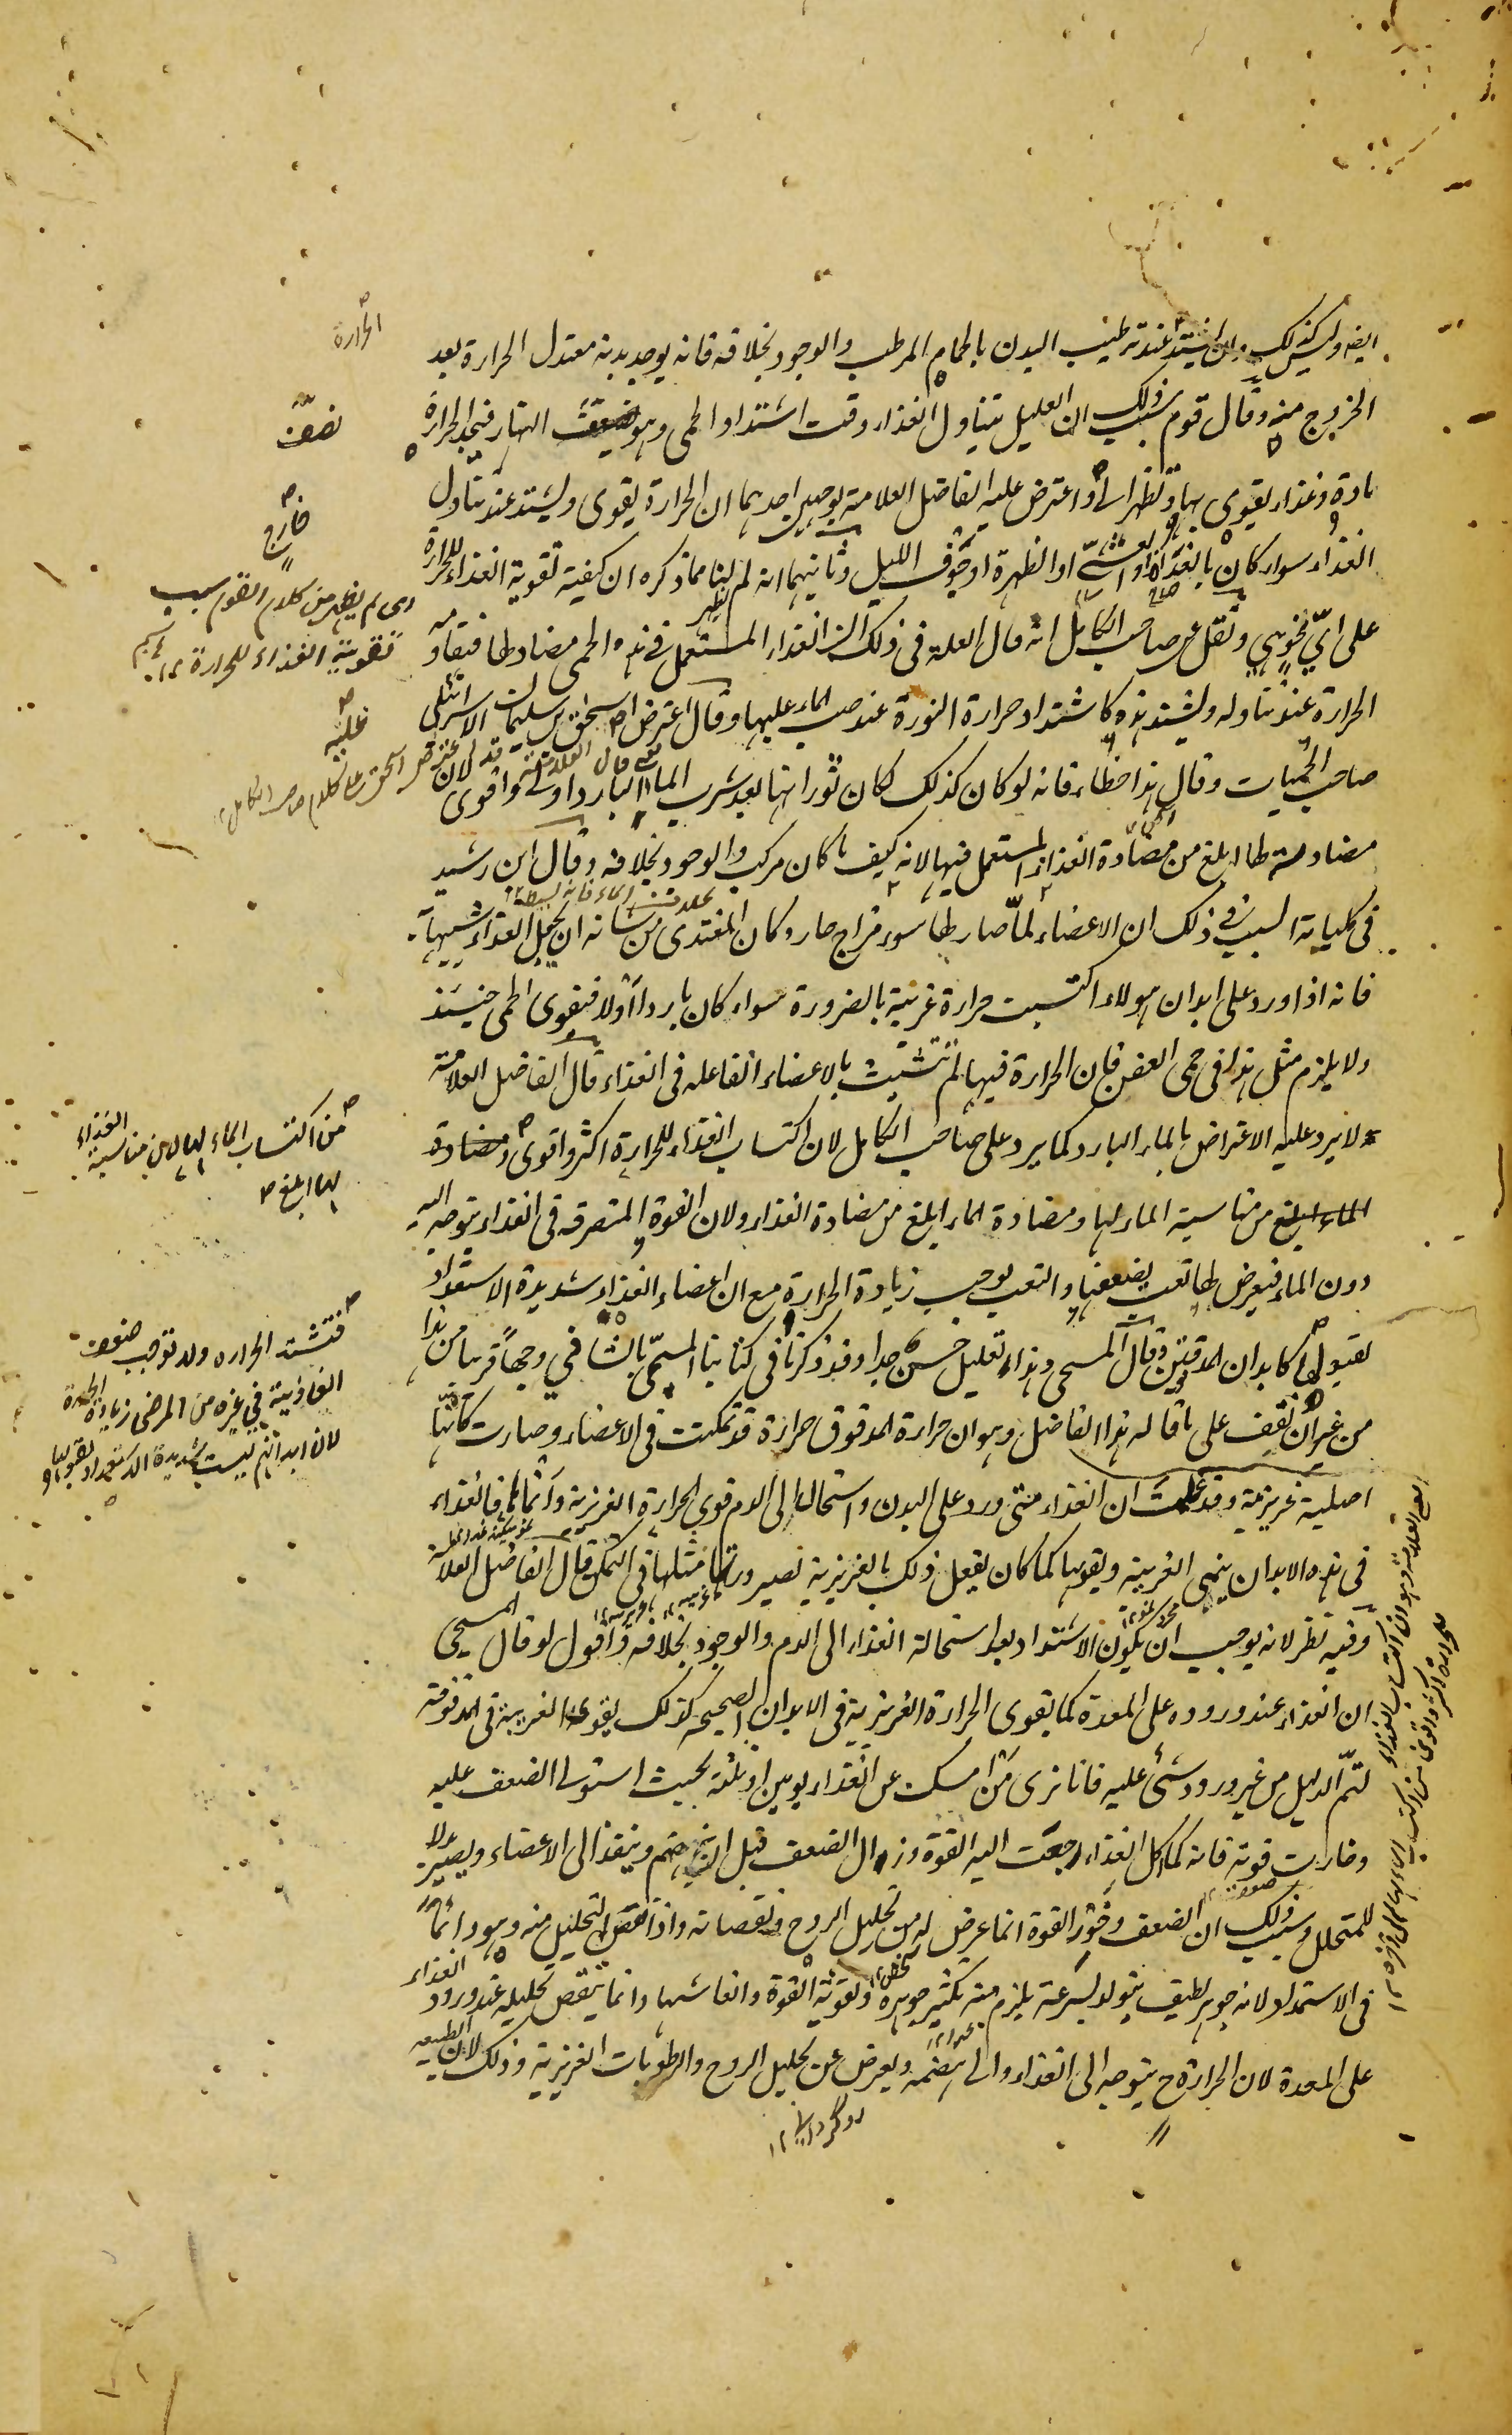 ايضا وليس كذلك ولان يشتد عند ترطيب البدن بالحمام المرطب والوجود بخلافه فانه يوجد بدنه معتدل الحرارة بعد
الخروج منه وقال قوم سبب ذلك ان العليل يتناول الغذاء وقت اشتداد الحمى وهو نصف النهار فتجد الحرارة
مادة وغذاء يقوى بها وتظهر واعترض عليه الفاضل العلامة بوجهين احدهما ان الحرارة يقوى ويشتد عند تناول
الغذاء سواء كان بالغداة او العشي او الظهيرة او جوف الليل وثانيهما انه لم يظهر لنا مما ذكره ان كيفية تقوية الغذاء للحرارة
على اي نحو هي ونقل عن صاحب الكامل انه قال العلة في ذلك ان الغذاء المستعمل في هذه الحمى مضاد لها فتقاومه
الحرارة عند تناوله ويشتد هذه كاشتداد حرارة النورة عند صب الماء عليها وقال اعترض اسحق بن سليمان الاسرائيلي
صاحب الحميات وقال هذا خطاء فانه لو كان كذلك لكان ثورانها بعد شرب الماء البارد اولى واقوى
مضادته لها ابلغ من مضادة الغذاء المستعمل فيها لانه كيف ما كان مركب والوجود بخلافه وقال ابن رشد
في كلياته السبب في ذلك ان الاعضاء لما صار لها سوء مزاج حار وكان المغتذى من شانه ان يجعل الغذاء شبيها به
فانه اذا ورد على ابدان هولاء اكتسبت حرارة غريبة بالضرورة سواء كان باردا اولا فتقوى الحمى حينئذ
ولا يلزم مثل هذا في حمى العفن فان الحرارة فيها لم تتشبث بالاعضاء الفاعله في الغذاء قال الفاضل العلامة
لا يرد عليه الاعتراض بالماء البارد كما يرد على صاحب الكامل لان اكتساب الغذاء للحرارة اكثر واقوى ومضادة
الماء ابلغ من مناسبة الماء لها ومضادة الماء ابلغ من مضادة الغذاء ولان القوة المتصرفه في الغذاء يتوجه اليه
دون الماء فيعرض لها تعب يضعفها والتعب يوجب زيادة الحرارة مع ان اعضاء الغذاء شديدة الاستعداد
لقبولها كابدان المدقوقين وقال المسيحى وهذا تعليل حسن جدا وقد ذكرنا في كتابنا المسمى بالشافي وجها قريبا من هذا
من غير ان نقف على ما قاله هذا الفاضل وهو ان حرارة المدقوق حرارة قد تمكنت في الاعضاء وصارت كانها
اصلية غريزية وقد علمت ان الغذاء متى ورد على البدن واستحال الى الدم قوى الحرارة الغريزية وانماها فالغذاء
في هذه الابدان ينمى الغريبة ويقويها كما كان يفعل ذلك بالغريزية لصيرورتها مثلها في التمكن قال الفاضل العلامة
وفيه نظر لانه يوجب ان يكون الاشتداد بعد استحالة الغذاء الى الدم والوجود بخلافه واقول لو قال المسيحى
ان الغذاء عند وروده على المعدة كما يقوى الحرارة الغريزية في الابدان الصحيحة كذلك يقوى الغريبة في المدقوقة
لتم الدليل من غير ورود شئ عليه فانا نرى من امسك عن الغذاء يومين او ثلثة بحيث استولى الضعف عليه
وخارت قوته فانه كما اكل الغذاء رجعت اليه القوة وزال الضعف قبل ان ينهضم وينفذ الى الاعضاء ويصير بدلا
للمتحلل وسبب ذلك ان الضعف وخور القوة انما عرض له من تحليل الروح ونقصانه واذا نقص التحليل منه وهو دائما
في الاستمداد لانه جوهر لطيف يتولد بسرعة يلزم منه تكثير جوهره وتقوية القوة وانعاشها وانما ينقص تحليله عند ورود الغذاء
على المعدة لان الحرارة ح يتوجه الى الغذاء والى هضمه ويعرض عن تحليل الروح والرطوبات الغريزية وذلك لان الطبيعه
الحرارة
نصف
خارج
اى لم يظهر من كلام القوم سبب
تقوية الغذاء للحرارة
غلبه
من اكتساب الماء لها لان مناسبة الغذاء
لها ابلغ
فتشتد الحراره ولا توجب ضعف
الغاذية في غيره من المرضى زيادة الحرارة
لان ابدانهم ليست شديدة الاستعداد لقبولها